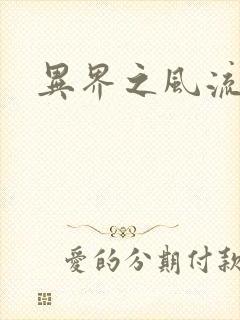 異界之風流
愛的分期付款